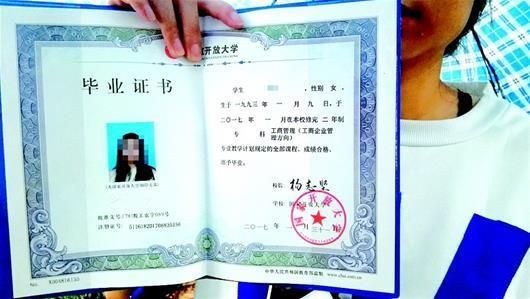 家开放大学
毕业证书
学生 ，性别 女，
生于一九九三年 一 月 九 日，于
二〇一七年 一 月在本校修完 二 年制
专 科 工商管理（工商企业管理方向）
专业教学计划规定的全部课程，成绩合格，
准予毕业。
校长：杨志坚
学校：国家开放大学
二〇一七年一月三十一日
批准文号：(79)教工农字089号
注册证号：
No.
中华人民共和国教育部监制